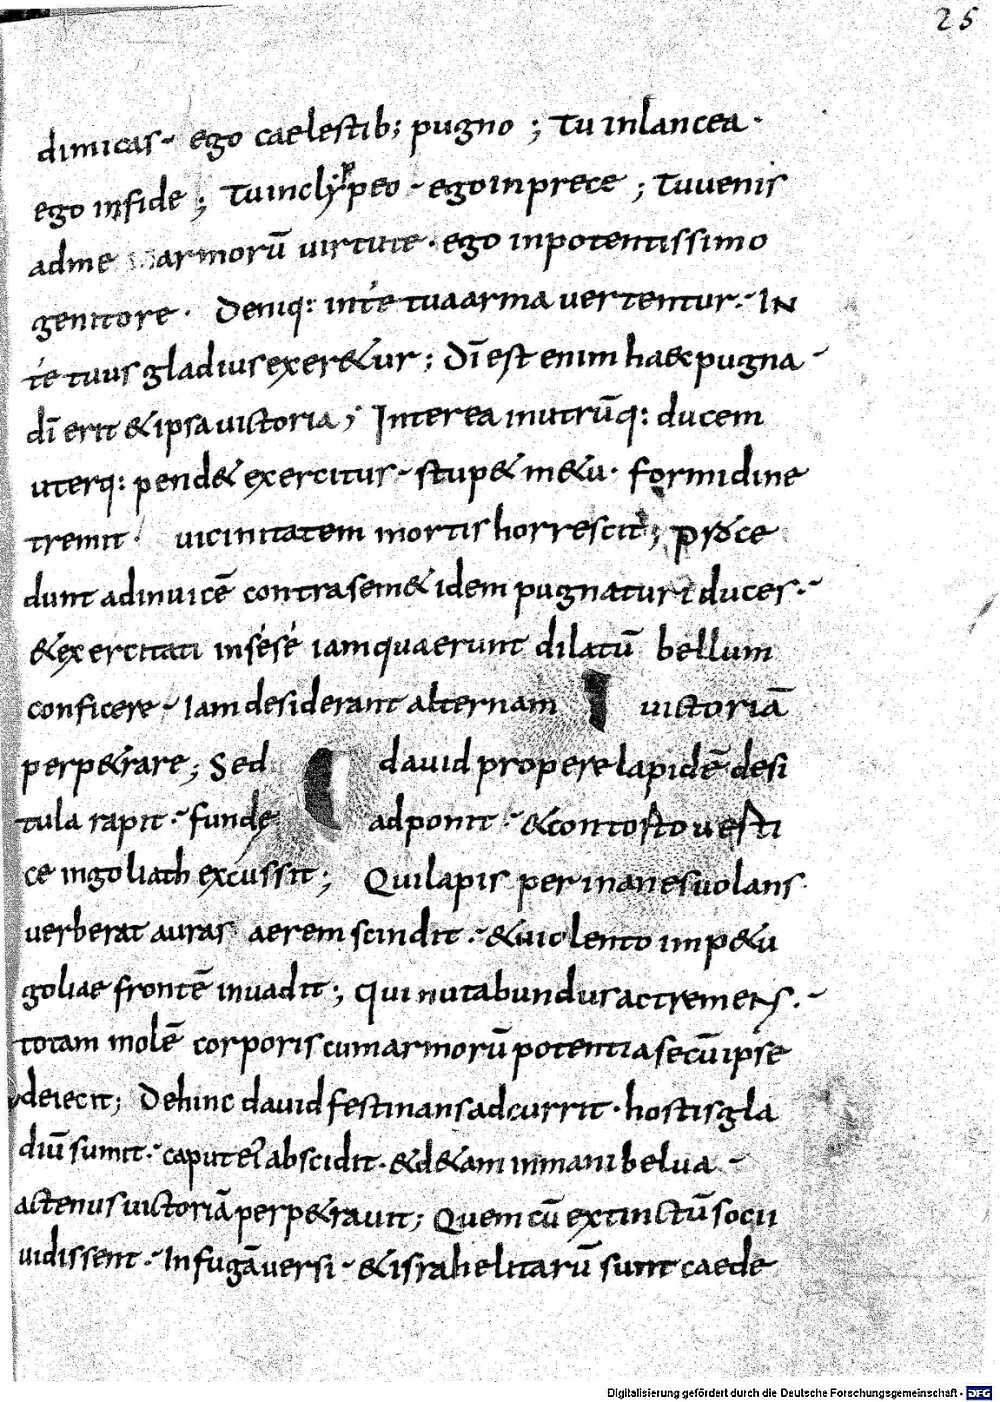 25
dimicas ego caelestib; pugno ; tu inlancea
ego infide ; tuinclypeo egoinprece ; tuuenis
adme armorū uirtute · ego inpotentissimo
genitore · deniq: inte tuaarma uertentur · IN
te tuus gladius exer&ur ; dī est enim haec pugna
dī erit & ipsa uictoria ; Interea inutrūq: ducem
uterq: pend& exercitus · stup& m&u · formidine
tremit · uicinitatem mortis horrescit ; proce
dunt adinuicē contrasem& idem pugnaturi duces ·
& exercitati insese iamquaerunt dilatū bellum
conficere · Iam desiderant alternam uictoriā
perp&rare ; Sed dauid propere lapidē desi
tula rapit · funde adponit · & contosto uesti
ce ingoliath excussit ; Qui lapis per inanes uolans
uerberat auras aerem scindit · & uiolento imp&u
goliae frontē inuadit ; qui nutabundus actremens ·
totam molē corporis cumarmorū potentia secū ipse
deiecit ; Dehinc dauid festinans adcurrit · hostis gla
diū sumit · caput ei abscidit · & d& am inmani belua
actenus uictoriā perp&rauit ; Quem cū extinctū socii
uidissent · Infugā uersi · & israhelitarū sunt caede
Digitalisierung gefördert durch die Deutsche Forschungsgemeinschaft - DFG